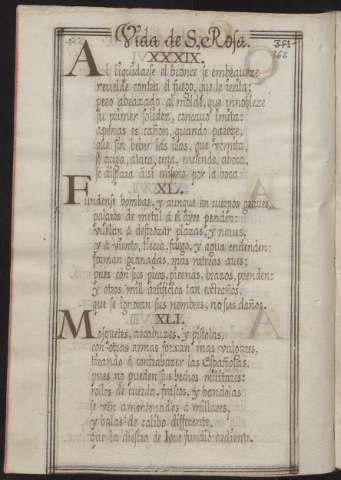 Vida de S. Rosa.
351
262
XXXIX.
Al liquidarse el bronce, se embravece
revelde contra el fuego, que le
pero abrazado al molde, que
su primer solidez, concavo imita:
apenas es cañon, quando parece,
que sin bever las iras, que vomita,
ataca, tira, enciende, aboca
se dispara à si mismo por la boca.
XL.
Fundense bombas, y aunque en cuerpos graves,
pajaros de metal à el ayre penden:
vuelan à destrozar plazas, y naves,
y à viento, tierra, fuego, y agua encienden:
forman granadas, mas rateras aves:
pues con sus picos, piernas, brazos, prenden:
y otros mil artificios tan extraños,
que se ignoran sus nombres, no sus daños.
XLI.
Mosquetes, arcabuzes, y pistolas,
con otras armas forxan mas vulgares,
tirando à contrahazer las Españolas,
pues no pueden sus hechos militares:
rollos de cuerda, frascos, y bandolas
se ven amontonados à millares,
y balas de calibo differente,
que la diestra de Iove fundiò ardiente.